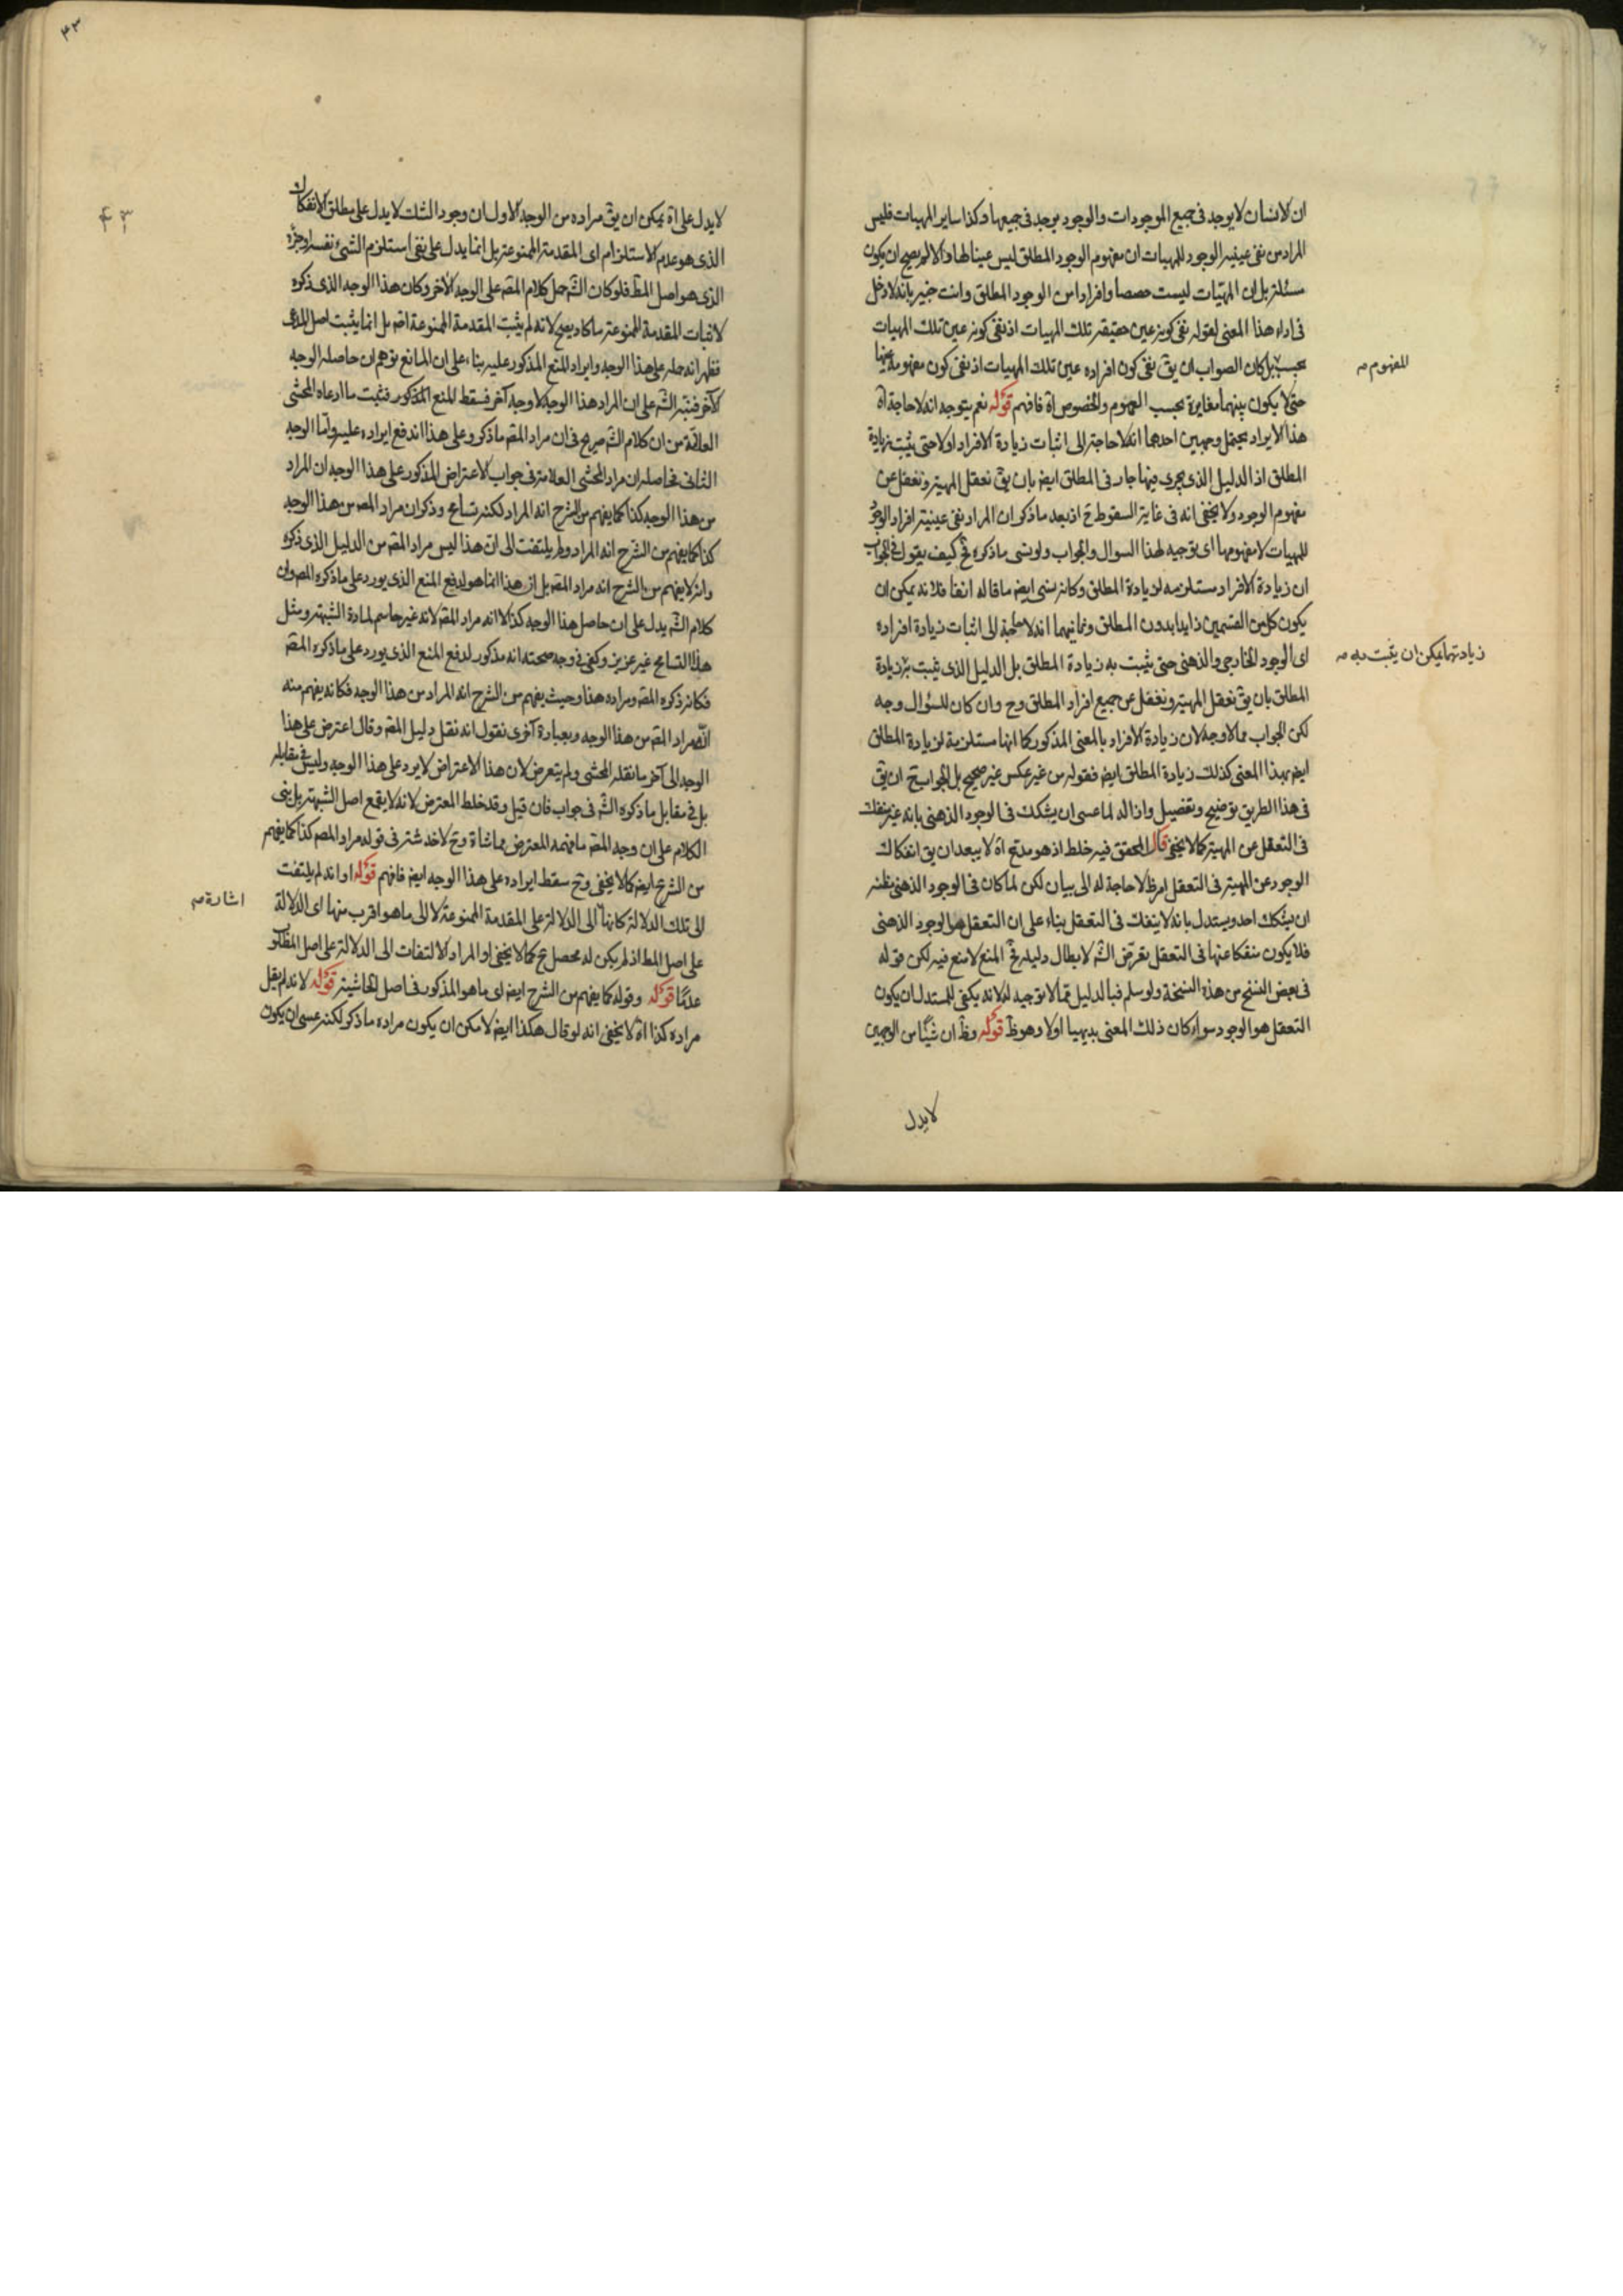 ان الانسان لا يوجد فى جميع الموجودات والوجود يوجد فى جميعها وكذا ساير المهيات فليس
المراد من نفى عينية الوجود للمهيات ان مفهوم الوجود المطلق ليس عينا لها والا لم يصح ان يكون
بل ان المهيات ليست حصصا وافرادا من الوجود المطلق وانت خبير بانه لا دخل
فى اداء هذا المعنى لقوله نفى كونه عين حقيقة تلك المهيات اذ نفى كونه عين تلك المهيات
بحسب بل كان الصواب ان يق نفى كون افراده عين تلك المهيات اذ نفى كون مفهومه عينها
المفهوم صح
حتى لا يكون بينهما مغايرة بحسب العموم والخصوص اه فافهم قوله نعم يتوجه انه لا حاجة اه
هذا الايراد يحتمل وجهين احدهما انه لا حاجة الى اثبات زيادة الافراد اولا حتى يثبت زيادة
المطلق اذ الدليل الذى يجرى فيها جار فى المطلق ايض بان يق نعقل المهية ونغفل عن
مفهوم الوجود ولا يخفى انه فى غاية السقوط ح اذ بعد ما ذكر ان المراد نفى عينية افراد الوجود
للمهيات لا مفهومها اى توجيه لهذا السوال والجواب ولو نسى ما ذكره فح كيف يقول فى الجواب
ان زيادة الافراد مستلزمة لزيادة المطلق وكانه نسى ايض ما قاله انفا فلانه يمكن ان
يكون كل من القسمين زايدا بدون المطلق وثانيهما انه لا حاجة الى اثبات زيادة افراده
اى الوجود الخارجى والذهنى حتى يثبت به زيادة المطلق بل الدليل الذى يثبت به زيادة
زيادتهما يمكن ان يثبت به صح
المطلق بان يق نعقل المهية ونغفل عن جميع افراد المطلق وح وان كان للسؤال وجه
لكن الجواب مما لا وجه لان زيادة الافراد بالمعنى المذكور كما انها مستلزمة لزيادة المطلق
ايض بهذا المعنى كذلك زيادة المطلق ايض فقوله من غير عكس غير صحيح بل الجواب ح ان يق
فى هذا الطريق توضيح وتفضيل وازاله لما عسى ان يشكك فى الوجود الذهنى بانه غير منفك
فى التعقل عن المهية كما لا يخفى قال المحقق فيه خلط اذ هو مدع اه لا يبعد ان يق انفكاك
الوجود عن المهية فى التعقل امر ظ لا حاجة له الى بيان لكن لما كان فى الوجود الذهنى مظنة
ان يشكك احد ويستدل بانه لا ينفك فى التعقل بناء على ان التعقل هو الوجود الذهنى
فلا يكون منفكا عنها فى التعقل تعرض الش لابطال دليله فح المنع لا منع فيه لكن قوله
فى بعض النسخ من هذه النسخة ولو سلم فبالدليل مما لا توجيه له لانه يكفى للمستدل ان يكون
التعقل هو الوجود سواء كان ذلك المعنى بديهيا اولا وهو ظ قوله وظ ان شيئا من الوجهين
لا يدل
٤٣
لا يدل على اه يمكن ان يق مراده من الوجه الاول ان وجود الثلث لا يدل على مطلق الانفكاك
الذى هو عدم الاستلزام اى المقدمة الممنوعة بل انما يدل على نفى استلزم الشئ نفسه او جزءه
الذى هو اصل المط فلو كان الش حمل كلام المص على الوجه الاخر وكان هذا الوجه الذى ذكره
لاثبات المقدمة الممنوعة ما كاد يصح لانه لم يثبت المقدمة الممنوعة اصلا بل انما يثبت اصل المدعى
فظهر انه حمله على هذا الوجه وايراد المنع المذكور عليه بناء على ان المانع توهم ان حاصله الوجه
الاخر فنبه الش على ان المراد هذا الوجه لا وجه آخر فسقط المنع المذكور فثبت ما ادعاه المحشى
العلامة من ان كلام الش صريح فى ان مراد المص ما ذكر وعلى هذا اندفع ايراده عليه واما الوجه
الثانى فحاصله ان مراد المحشى العلامة فى جواب الاعتراض المذكور على هذا الوجه ان المراد
من هذا الوجه كذا كما يفهم من الشرح انه المراد لكنه تسامح وذكر ان مراد المص من هذا الوجه
كذا كما يفهم من الشرح انه المراد ولم يلتفت الى ان هذا ليس مراد المص من الدليل الذى ذكره
وانه لا يفهم من الشرح انه مراد المص بل ان هذا انما هو لدفع المنع الذى يورد على ما ذكره المص وان
كلام الش يدل على ان حاصل هذا الوجه كذا لا انه مراد المص لانه غير حاسم لمادة الشبهة ومثل
هذا التسامح غير عزيز وكفى فى وجه صحته انه مذكور لدفع المنع الذى يورد على ما ذكره المص
فكانه ذكره المص ومراده هذا وحيث يفهم من الشرح انه المراد من هذا الوجه فكانه يفهم منه
انه مراد المص من هذا الوجه وبعبارة اخرى نقول انه نقل دليل المص وقال اعترض على هذا
الوجه الى آخر ما نقله المحشى ولم يتعرض لان هذا الاعتراض لا يرد على هذا الوجه وليس فى مقابله
بل فى مقابل ما ذكره الش فى جواب فان قيل وقد خلط المعترض لانه لا يقمع اصل الشبهة بل بنى
الكلام على ان وجه المص ما فهمه المعترض مماشاة وح لا خدشة فى قوله مراد المص كذا كما يفهم
من الشرح ايض كما لا يخفى وح سقط ايراده على هذا الوجه ايض فافهم قوله او انه لم يلتفت
الى تلك الدلالة كانها الى الدلالة على المقدمة الممنوعة لا الى ما هو اقرب منها اى الدلالة
اشارة صح
على اصل المط اذ لم يكن له محصل ح كما لا يخفى او المراد الالتفات الى الدلالة على اصل المطلوب
عدمًا قوله وقوله كما يفهم من الشرح ايض اى ما هو المذكور فى اصل الحاشية قوله لانه لم يقل
مراده كذا اه لا يخفى انه لو قال هكذا ايض لامكن ان يكون مراده ما ذكر لكنه عسى ان يكون